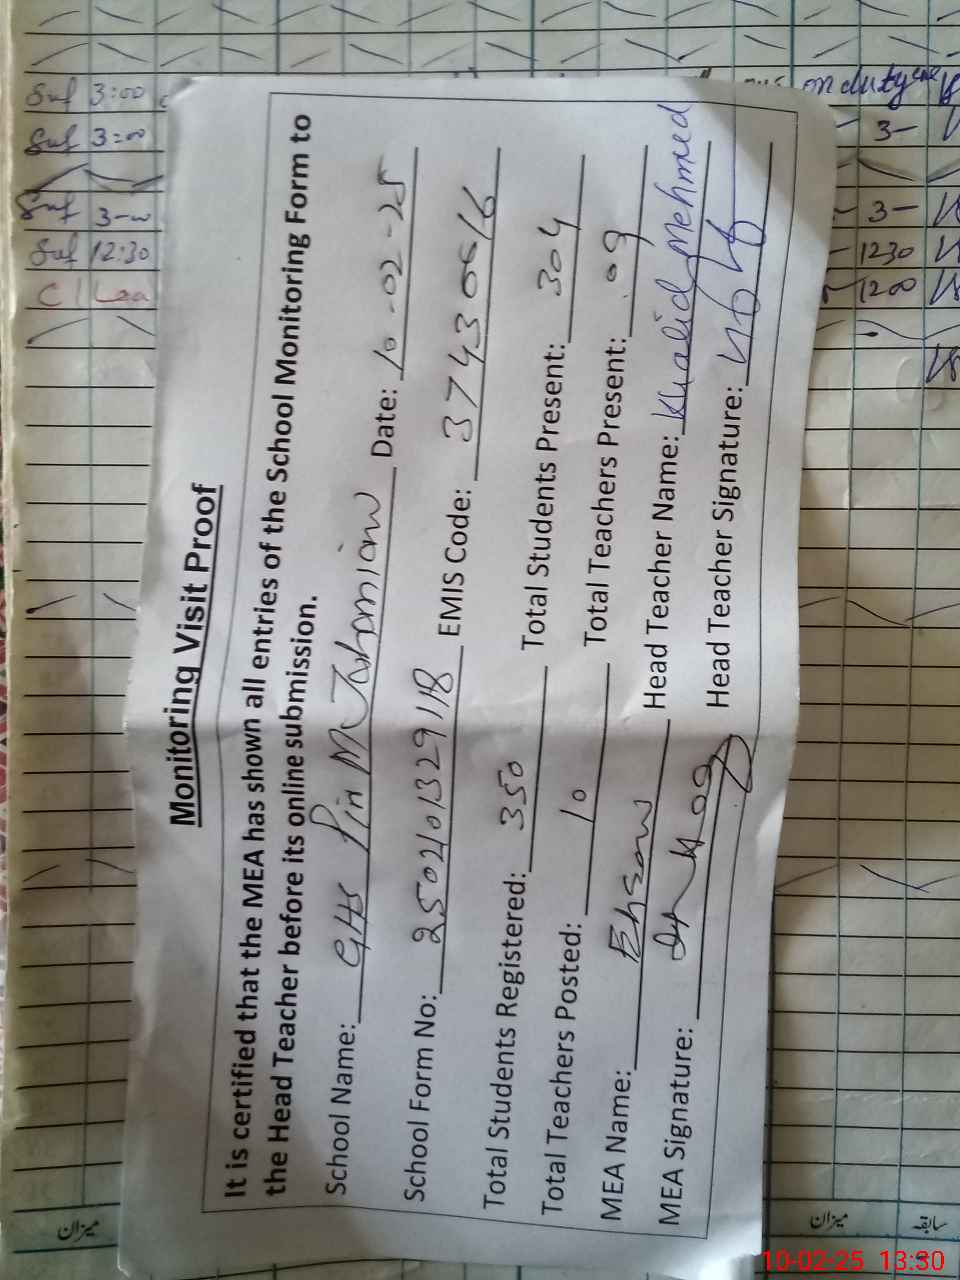 Monitoring Visit Proof
It is certified that the MEA has shown all entries of the School Monitoring Form to
the Head Teacher before its online submission.
School Name: GHS Pir M Jahanian Date: 10-02-25
School Form No: 2502101329118 EMIS Code: 37430016
Total Students Registered: 350 Total Students Present: 304
Total Teachers Posted: 10 Total Teachers Present: 09
MEA Name: Ehsan Head Teacher Name: Khalid Mehmed
MEA Signature: Head Teacher Signature:
on duty
3:00
3=00
3-
12:30
3-
3-
1230
1200
میزان
میزان
سابقہ
10-02-25 13:30